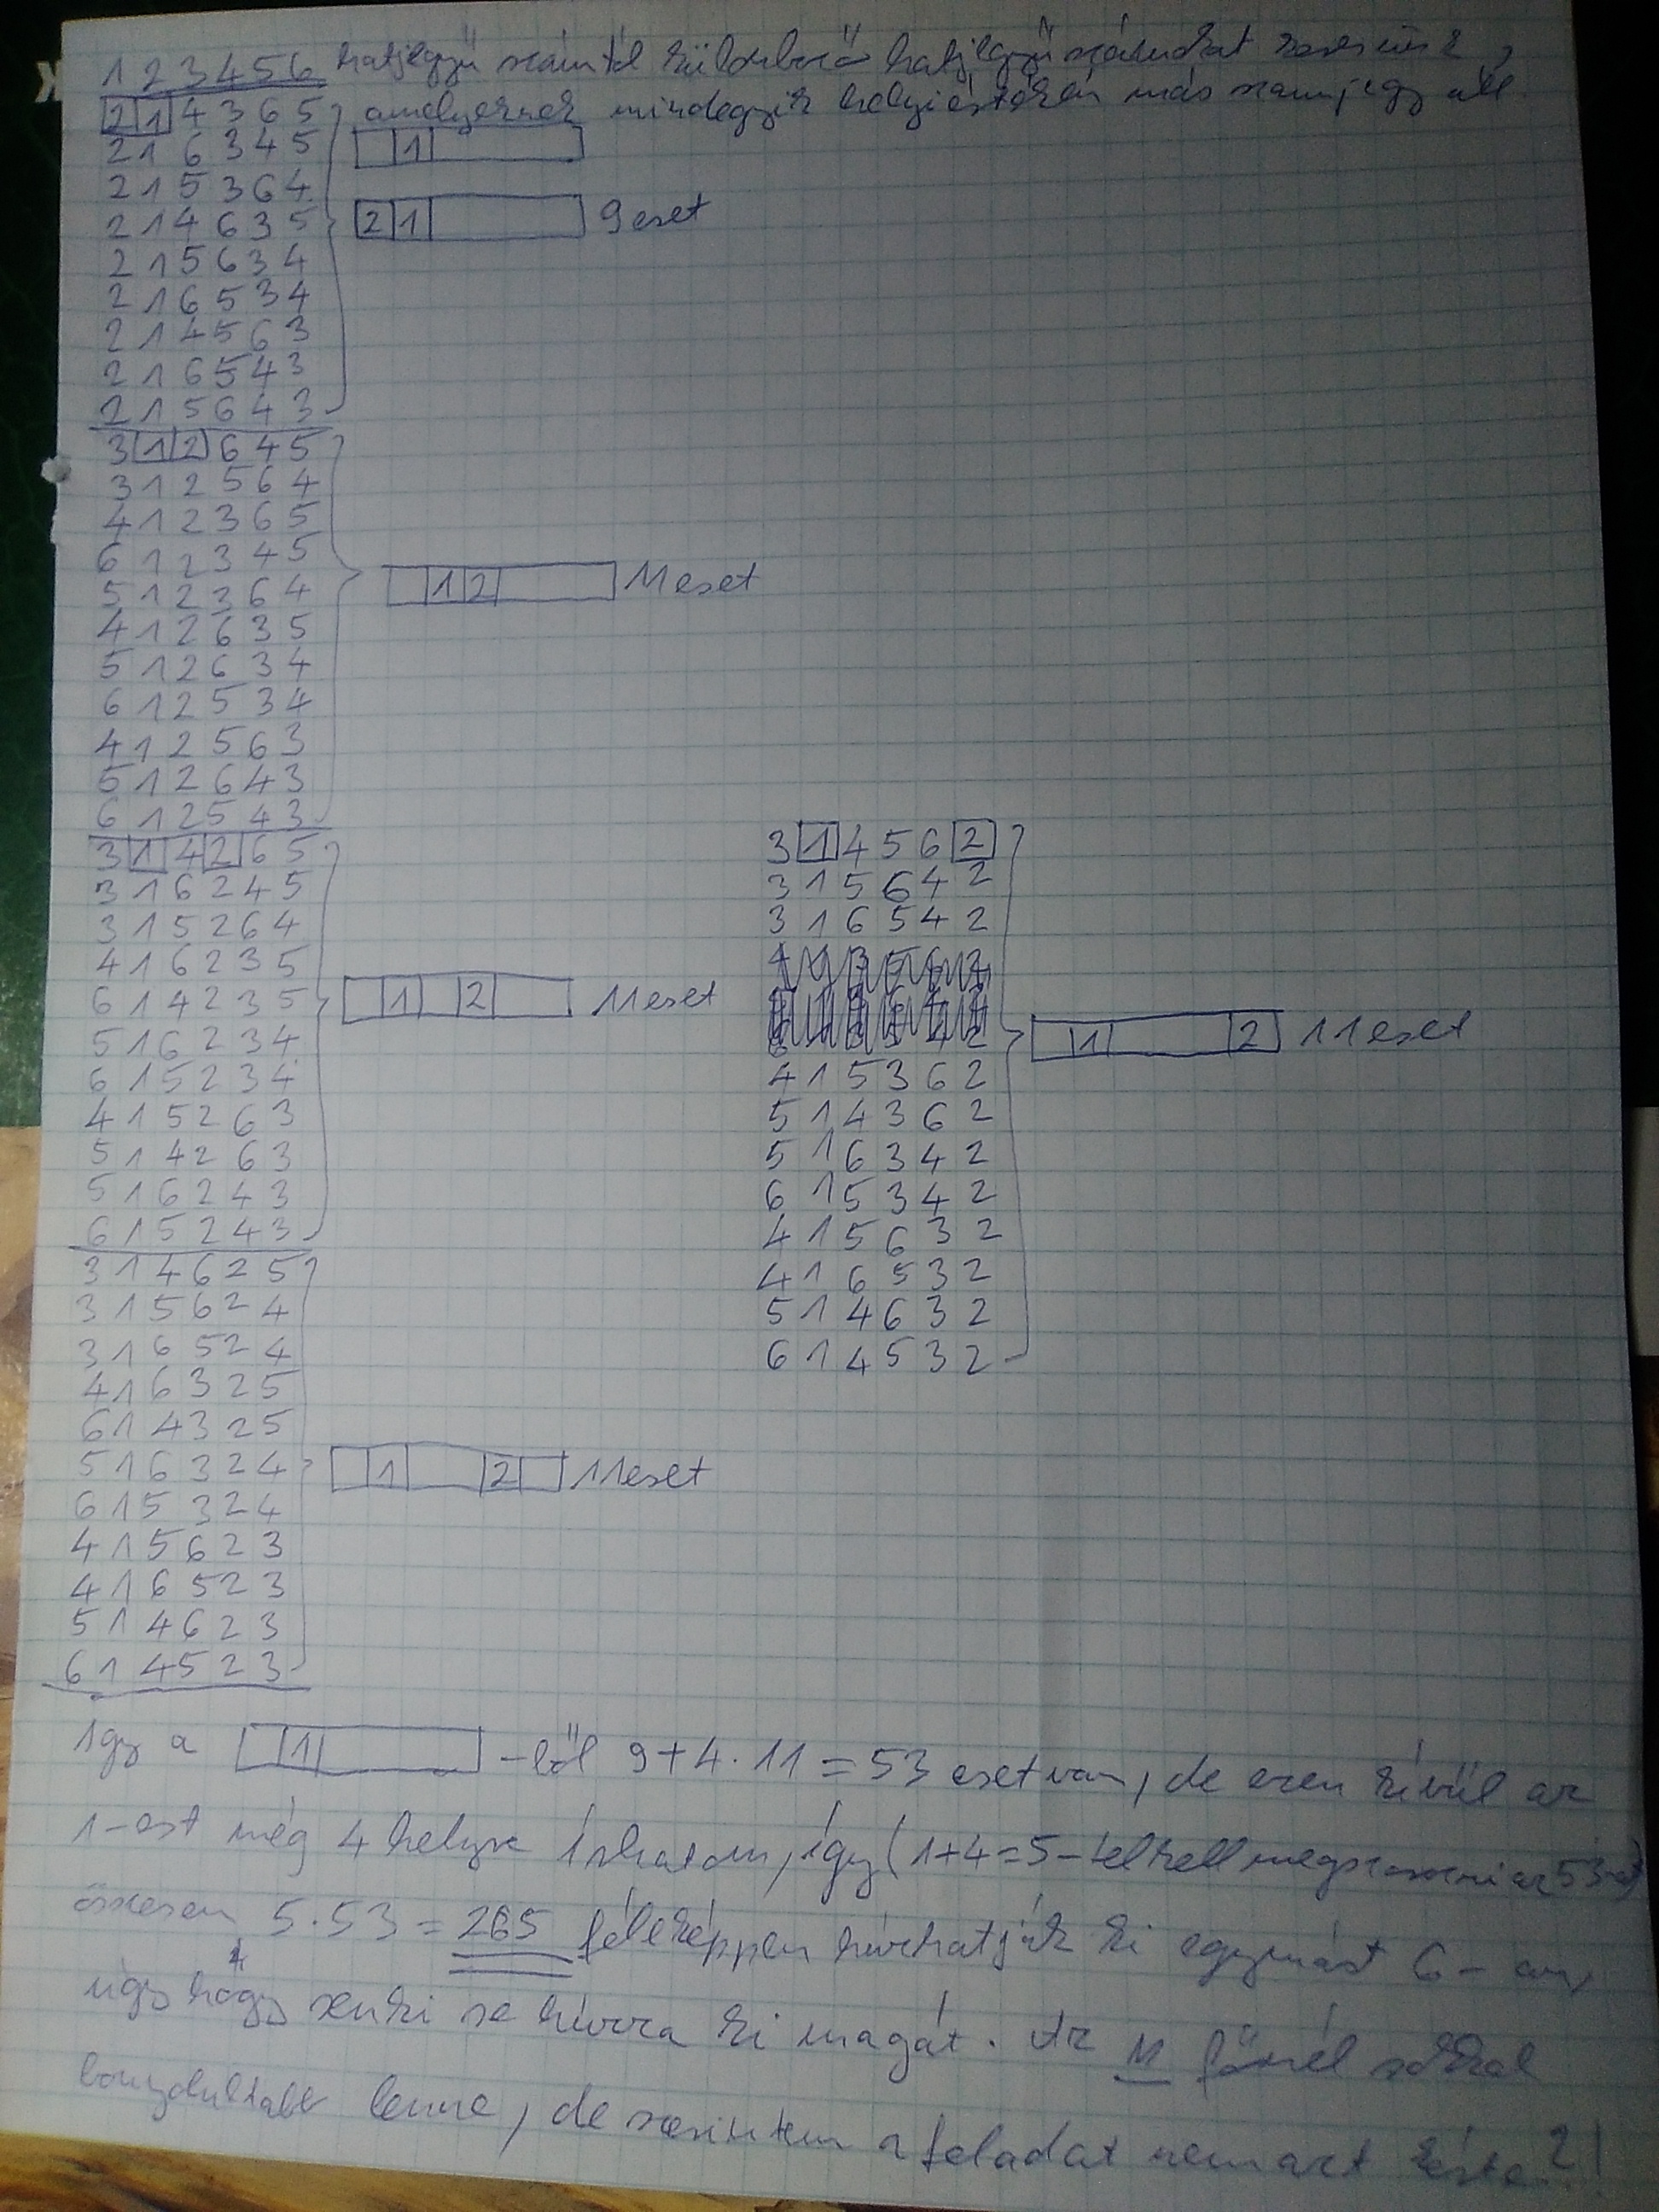 123456 hatjegyű számtól különböző hatjegyű számokat keresünk,
amelyeknek mindegyik helyiértékén más számjegy áll.
214365
216345
1
215364
214635
21 9 eset
215634
216534
214563
216543
215643
312645
312564
412365
612345
512364
12 11 eset
412635
512634
612534
412563
512643
612543
314265
316245
315264
416235
614235
1 2 11 eset
516234
615234
415263
514263
516243
615243
314562
315642
316542
415362
514362
516342
615342
415632
416532
514632
614532
1 2 11 eset
314625
315624
316524
416325
614325
516324
1 2 11 eset
615324
415623
416523
514623
614523
Így a 1 -ből 9+4·11=53 eset van, de ezen kívül az
1-est még 4 helyre írhatom, így (1+4=5-tel kell megszorozni az 53-at)
összesen 5·53=265 féleképpen hívhatják ki egymást 6-an,
úgy hogy senki se hívja ki magát. Az 11 főnél sokkal
bonyolultabb lenne, de szerintem a feladat nem azt kérte?!